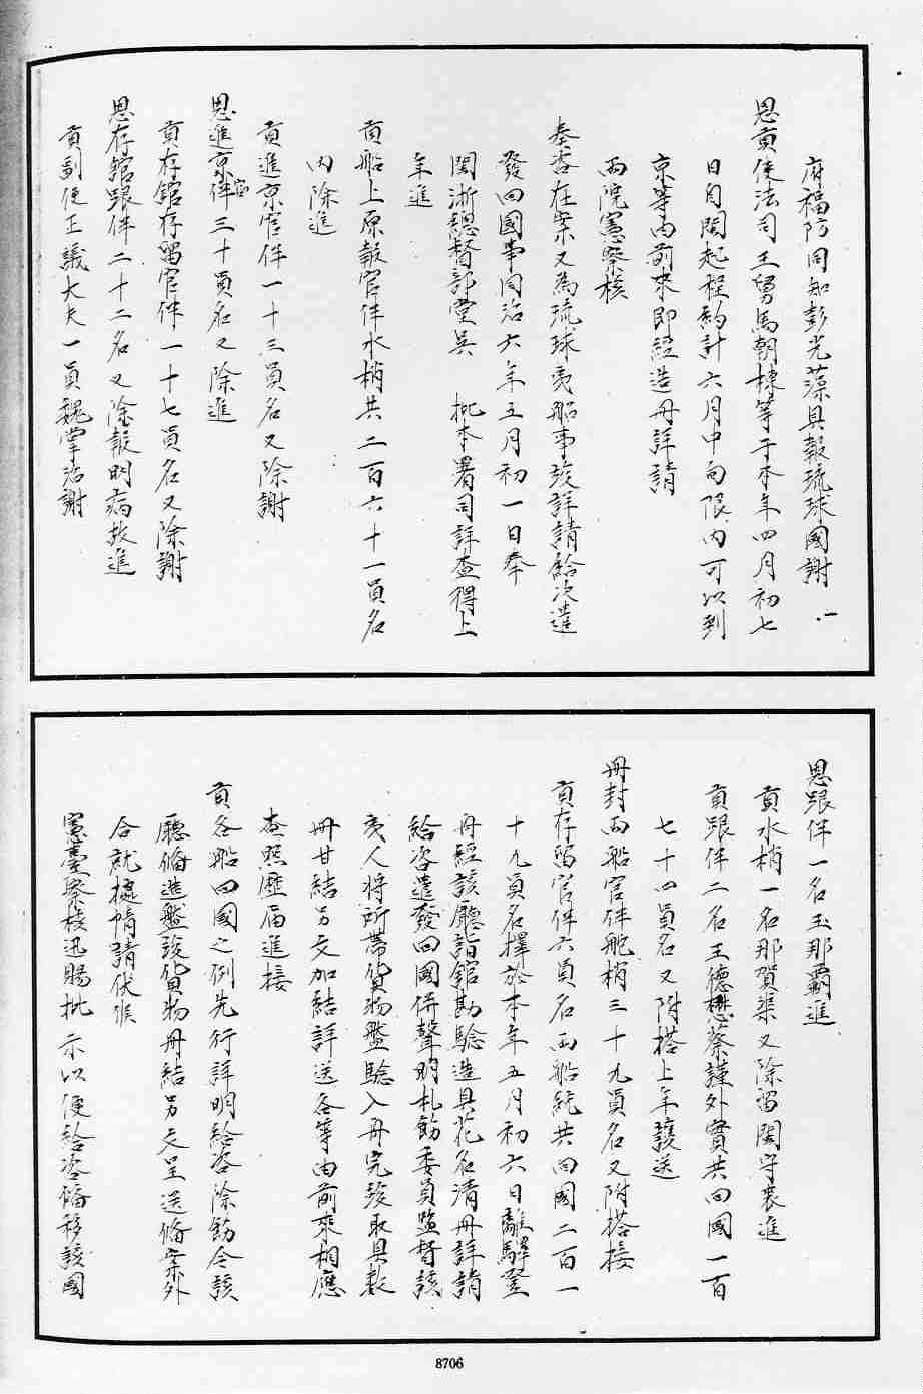 府福防同知彭光藻具報琉球國謝
恩貢使法司王舅馬朝棟等于本年四月初七
日自閩起程約計六月中旬限內可以到
京等由前來即經造册詳請
兩院憲察核
奏咨在案又為琉球夷船事竣詳請給咨遣
發回國事同治六年五月初一日奉
閩浙總督部堂吳 批本署司詳查得上
年進
貢船上原報官伴水梢共二百六十一員名
內除進
貢進京官伴一十三員名又除謝
恩進京官伴三十員名又除進
貢存館存留官伴一十七員名又除謝
恩存館跟伴二十二名又除報明病故進
貢副使正議大夫一員魏掌治謝
恩跟伴一名玉那霸進
貢水梢一名那賀渠又除留閩守喪進
貢跟伴二名王德懋蔡謹外實共回國一百
七十四員名又附搭上年護送
冊封兩船官伴舵梢三十九員名又附搭接
貢存留官伴六員名兩船統共回國二百一
十九員名擇於本年五月初六日離驛登
舟經該廳詣館勘驗造具花名清册詳請
給咨遣發回國併聲明札飭委員監督該
夷人將所帶貨物盤驗入册完竣取具數
册甘結另文加結詳送各等由前來相應
查照歷屆進接
貢各船回國之例先行詳明給咨除飭令該
廳備造盤驗貨物册結另文呈送備案外
合就據情請伏候
憲臺察核迅賜批示以便給咨備移該國
8706